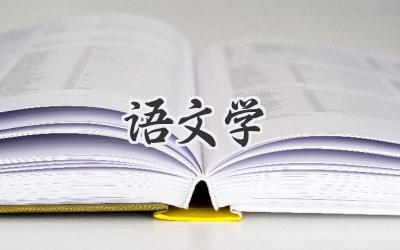 语文学